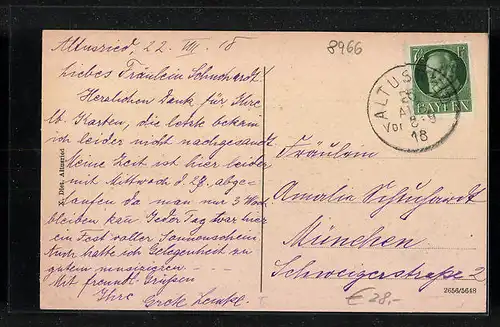 Altusried, 22. VIII. 18
8966
Liebes Fräulein Schuhardt
Herzlichen Dank für Ihre
lb. Karten, die letzte bekam
ich leider nicht nachgesandt.
Meine Zeit ist hier leider
mit Mittwoch d. 28. abge-
laufen da man nur 3 Woch.
bleiben kan. Jeder Tag war hier
ein Fest voller Sonnenschein
Auch hatte ich Gelegenheit zu
gutem musiziren - - -
Mit freundl. Grüssen
Ihre Grete
7½ Pf.
BAYERN
ALTUS
AUG
Vor 8-9
18
Fräulein
Amalie Schuhardt
München
Schweigerstraße 2
X. Diet. Altusried
2656/5648
€ 28,-